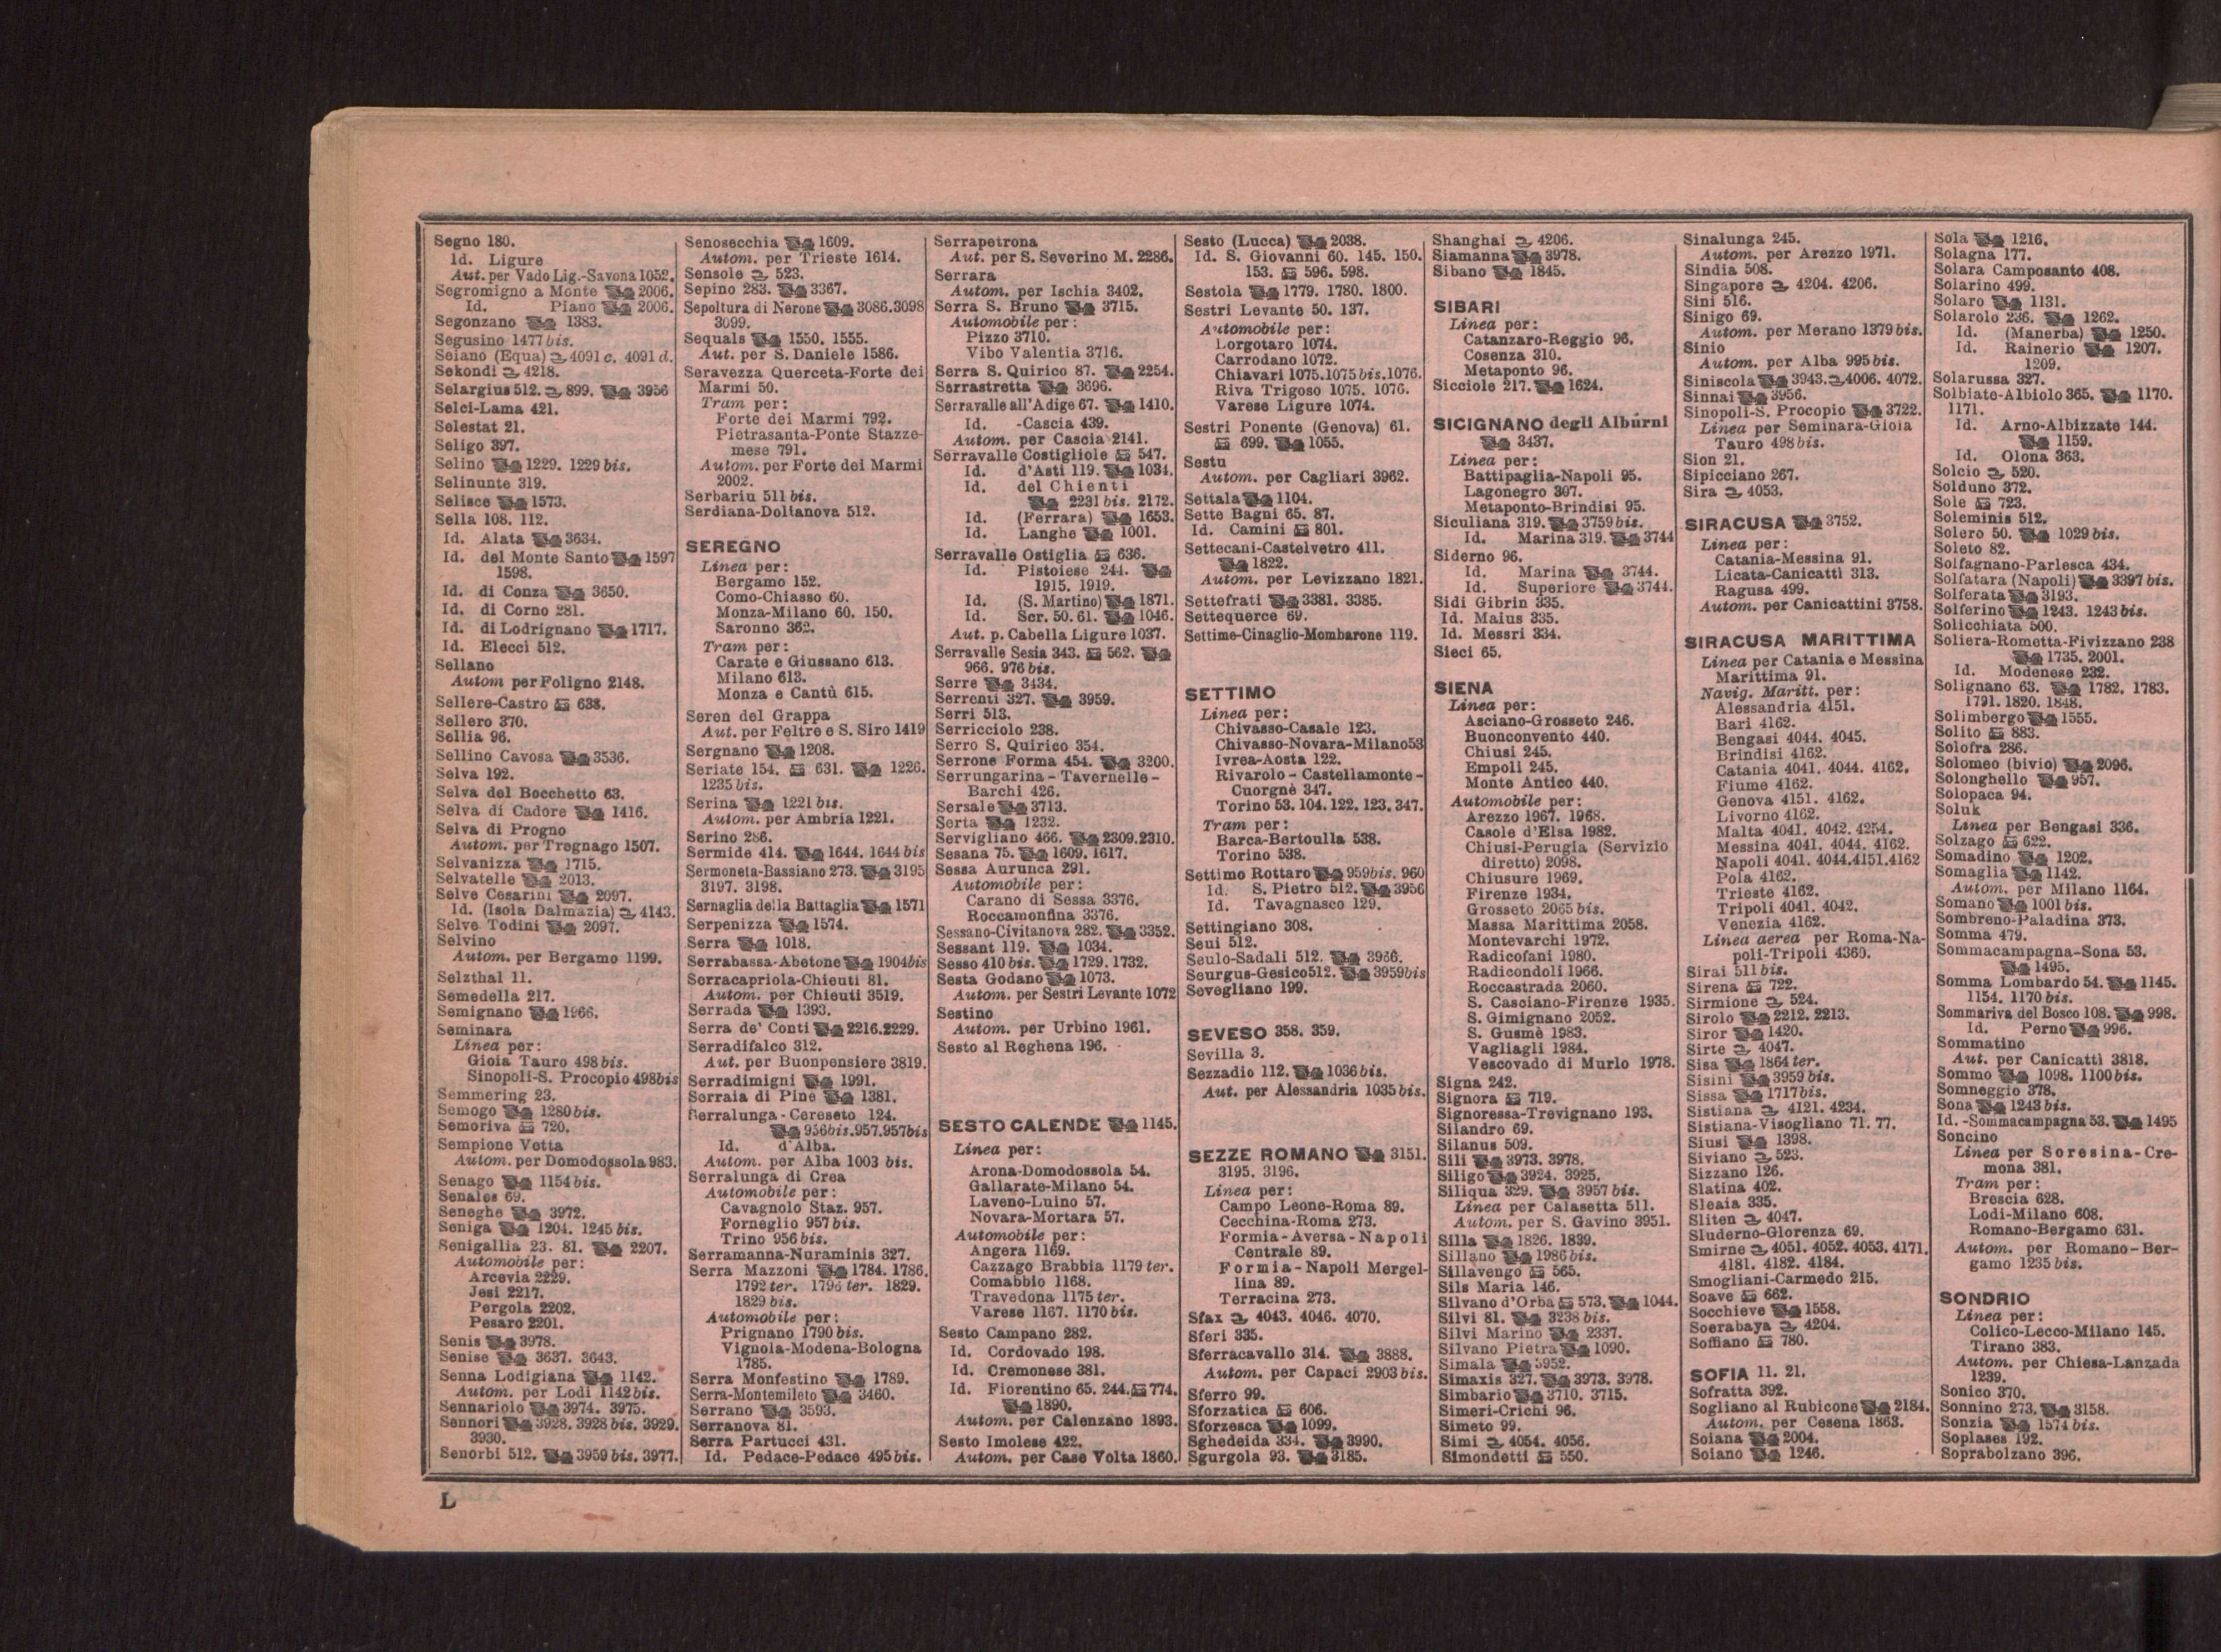 Segno 180.
Id. Ligure
Aut. per Vado Lig.-Savona 1052.
Segromigno a Monte 2006.
Id. Piano 2006.
Segonzano 1383.
Segusino 1477 bis.
Seiano (Equa) 4091 c. 4091 d.
Sekondi 4218.
Selargius 512. 899. 3956
Selci-Lama 421.
Selestat 21.
Seligo 397.
Selino 1229. 1229 bis.
Selinunte 319.
Selisce 1573.
Sella 108. 112.
Id. Alata 3634.
Id. del Monte Santo 1597
1598.
Id. di Conza 3650.
Id. di Corno 281.
Id. di Lodrignano 1717.
Id. Elecci 512.
Sellano
Autom per Foligno 2148.
Sellere-Castro 638.
Sellero 370.
Sellia 96.
Sellino Cavosa 3536.
Selva 192.
Selva del Bocchetto 63.
Selva di Cadore 1416.
Selva di Progno
Autom. per Tregnago 1507.
Selvanizza 1715.
Selvatelle 2013.
Selve Cesarini 2097.
Id. (Isola Dalmazia) 4143.
Selve Todini 2097.
Selvino
Autom. per Bergamo 1199.
Selzthal 11.
Semedella 217.
Semignano 1966.
Seminara
Linea per:
Gioia Tauro 498 bis.
Sinopoli-S. Procopio 498bis
Semmering 23.
Semogo 1280 bis.
Semoriva 720.
Sempione Vetta
Autom. per Domodossola 983.
Senago 1154 bis.
Senales 69.
Seneghe 3972.
Seniga 1204. 1245 bis.
Senigallia 23. 81. 2207.
Automobile per:
Arcevia 2229.
Jesi 2217.
Pergola 2202.
Pesaro 2201.
Senis 3978.
Senise 3637. 3643.
Senna Lodigiana 1142.
Autom. per Lodi 1142 bis.
Sennariolo 3974. 3975.
Sennori 3928. 3928 bis. 3929.
3930.
Senorbi 512. 3959 bis. 3977.
Senosecchia 1609.
Autom. per Trieste 1614.
Sensole 523.
Sepino 283. 3367.
Sepoltura di Nerone 3086.3098
3099.
Sequals 1550. 1555.
Aut. per S. Daniele 1586.
Seravezza Querceta-Forte dei
Marmi 50.
Tram per:
Forte dei Marmi 792.
Pietrasanta-Ponte Stazze-
mese 791.
Autom. per Forte dei Marmi
2002.
Serbariu 511 bis.
Serdiana-Dolianova 512.
SEREGNO
Linea per:
Bergamo 152.
Como-Chiasso 60.
Monza-Milano 60. 150.
Saronno 362.
Tram per:
Carate e Giussano 613.
Milano 613.
Monza e Cantù 615.
Seren del Grappa
Aut. per Feltre e S. Siro 1419
Sergnano 1208.
Seriate 154. 631. 1226.
1235 bis.
Serina 1221 bis.
Autom. per Ambria 1221.
Serino 286.
Sermide 414. 1644. 1644 bis
Sermoneta-Bassiano 273. 3195
3197. 3198.
Sernaglia della Battaglia 1571
Serpenizza 1574.
Serra 1018.
Serrabassa-Abetone 1904bis
Serracapriola-Chieuti 81.
Autom. per Chieuti 3519.
Serrada 1393.
Serra de' Conti 2216.2229.
Serradifalco 312.
Aut. per Buonpensiere 3819.
Serradimigni 1991.
Serraia di Pinè 1381.
Serralunga-Cereseto 124.
956bis.957.957bis
Id. d'Alba.
Autom. per Alba 1003 bis.
Serralunga di Crea
Automobile per:
Cavagnolo Staz. 957.
Forneglio 957 bis.
Trino 956 bis.
Serramanna-Nuraminis 327.
Serra Mazzoni 1784. 1786.
1792 ter. 1796 ter. 1829.
1829 bis.
Automobile per:
Prignano 1790 bis.
Vignola-Modena-Bologna
1785.
Serra Monfestino 1789.
Serra-Montemileto 3460.
Serrano 3593.
Serranova 81.
Serra Partucci 431.
Id. Pedace-Pedace 495 bis.
Serrapetrona
Aut. per S. Severino M. 2286.
Serrara
Autom. per Ischia 3402.
Serra S. Bruno 3715.
Automobile per:
Pizzo 3710.
Vibo Valentia 3716.
Serra S. Quirico 87. 2254.
Serrastretta 3696.
Serravalle all'Adige 67. 1410.
Id. -Cascia 439.
Autom. per Cascia 2141.
Serravalle Costigliole 547.
Id. d'Asti 119. 1034.
Id. del Chienti
2231 bis. 2172.
Id. (Ferrara) 1653.
Id. Langhe 1001.
Serravalle Ostiglia 636.
Id. Pistoiese 244.
1915. 1919.
Id. (S. Martino) 1871.
Id. Scr. 50. 61. 1046.
Aut. p. Cabella Ligure 1037.
Serravalle Sesia 343. 562.
966. 976 bis.
Serre 3434.
Serrenti 327. 3959.
Serri 513.
Serricciolo 238.
Serro S. Quirico 354.
Serrone Forma 454. 3200.
Serrungarina-Tavernelle-
Barchi 426.
Sersale 3713.
Serta 1232.
Servigliano 466. 2309.2310.
Sesana 75. 1609. 1617.
Sessa Aurunca 291.
Automobile per:
Carano di Sessa 3376.
Roccamonfina 3376.
Sessano-Civitanova 282. 3352.
Sessant 119. 1034.
Sesso 410 bis. 1729. 1732.
Sesta Godano 1073.
Autom. per Sestri Levante 1072
Sestino
Autom. per Urbino 1961.
Sesto al Reghena 196.
SESTO CALENDE 1145.
Linea per:
Arona-Domodossola 54.
Gallarate-Milano 54.
Laveno-Luino 57.
Novara-Mortara 57.
Automobile per:
Angera 1169.
Cazzago Brabbia 1179 ter.
Comabbio 1168.
Travedona 1175 ter.
Varese 1167. 1170 bis.
Sesto Campano 282.
Id. Cordovado 198.
Id. Cremonese 381.
Id. Fiorentino 65. 244. 774.
1890.
Autom. per Calenzano 1893.
Sesto Imolese 422.
Autom. per Case Volta 1860.
Sesto (Lucca) 2038.
Id. S. Giovanni 60. 145. 150.
153. 596. 598.
Sestola 1779. 1780. 1800.
Sestri Levante 50. 137.
Automobile per:
Borgotaro 1074.
Carrodano 1072.
Chiavari 1075.1075 bis.1076.
Riva Trigoso 1075. 1076.
Varese Ligure 1074.
Sestri Ponente (Genova) 61.
699. 1055.
Sestu
Autom. per Cagliari 3962.
Settala 1104.
Sette Bagni 65. 87.
Id. Camini 801.
Settecani-Castelvetro 411.
1822.
Autom. per Levizzano 1821.
Settefrati 3381. 3385.
Settequerce 69.
Settime-Cinaglio-Mombarone 119.
SETTIMO
Linea per:
Chivasso-Casale 123.
Chivasso-Novara-Milano53
Ivrea-Aosta 122.
Rivarolo-Castellamonte-
Cuorgnè 347.
Torino 53. 104. 122. 123. 347.
Tram per:
Barca-Bertoulla 538.
Torino 538.
Settimo Rottaro 959bis. 960
Id. S. Pietro 512. 3956
Id. Tavagnasco 129.
Settingiano 308.
Seui 512.
Seulo-Sadali 512. 3966.
Seurgus-Gesico512. 3959bis
Sevegliano 199.
SEVESO 358. 359.
Sevilla 3.
Sezzadio 112. 1036 bis.
Aut. per Alessandria 1035 bis.
SEZZE ROMANO 3151.
3195. 3196.
Linea per:
Campo Leone-Roma 89.
Cecchina-Roma 273.
Formia-Aversa-Napoli
Centrale 89.
Formia-Napoli Mergel-
lina 89.
Terracina 273.
Sfax 4043. 4046. 4070.
Sferi 335.
Sferracavallo 314. 3888.
Autom. per Capaci 2903 bis.
Sferro 99.
Sforzatica 606.
Sforzesca 1099.
Sghedeida 334. 3990.
Sgurgola 93. 3185.
Shanghai 4206.
Siamanna 3978.
Sibano 1845.
SIBARI
Linea per:
Catanzaro-Reggio 96.
Cosenza 310.
Metaponto 96.
Sicciole 217. 1624.
SICIGNANO degli Albúrni
3437.
Linea per:
Battipaglia-Napoli 95.
Lagonegro 307.
Metaponto-Brindisi 95.
Siculiana 319. 3759 bis.
Id. Marina 319. 3744
Siderno 96.
Id. Marina 3744.
Id. Superiore 3744.
Sidi Gibrin 335.
Id. Maius 335.
Id. Messri 334.
Sieci 65.
SIENA
Linea per:
Asciano-Grosseto 246.
Buonconvento 440.
Chiusi 245.
Empoli 245.
Monte Antico 440.
Automobile per:
Arezzo 1967. 1968.
Casole d'Elsa 1982.
Chiusi-Perugia (Servizio
diretto) 2098.
Chiusure 1969.
Firenze 1934.
Grosseto 2065 bis.
Massa Marittima 2058.
Montevarchi 1972.
Radicofani 1980.
Radicondoli 1966.
Roccastrada 2060.
S. Casciano-Firenze 1935.
S. Gimignano 2052.
S. Gusmè 1983.
Vagliagli 1984.
Vescovado di Murlo 1978.
Signa 242.
Signora 719.
Signoressa-Trevignano 193.
Silandro 69.
Silanus 509.
Sili 3973. 3978.
Siligo 3924. 3925.
Siliqua 329. 3957 bis.
Linea per Calasetta 511.
Autom. per S. Gavino 3951.
Silla 1826. 1839.
Sillano 1986 bis.
Sillavengo 565.
Sils Maria 146.
Silvano d'Orba 573. 1044.
Silvi 81. 3238 bis.
Silvi Marino 2337.
Silvano Pietra 1090.
Simala 3952.
Simaxis 327. 3973. 3978.
Simbario 3710. 3715.
Simeri-Crichi 96.
Simeto 99.
Simi 4054. 4056.
Simondetti 550.
Sinalunga 245.
Autom. per Arezzo 1971.
Sindia 508.
Singapore 4204. 4206.
Sini 516.
Sinigo 69.
Autom. per Merano 1379 bis.
Sinio
Autom. per Alba 995 bis.
Siniscola 3943. 4006. 4072.
Sinnai 3956.
Sinopoli-S. Procopio 3722.
Linea per Seminara-Gioia
Tauro 498 bis.
Sion 21.
Sipicciano 267.
Sira 4053.
SIRACUSA 3752.
Linea per:
Catania-Messina 91.
Licata-Canicattì 313.
Ragusa 499.
Autom. per Canicattini 3758.
SIRACUSA MARITTIMA
Linea per Catania e Messina
Marittima 91.
Navig. Maritt. per:
Alessandria 4151.
Bari 4162.
Bengasi 4044. 4045.
Brindisi 4162.
Catania 4041. 4044. 4162.
Fiume 4162.
Genova 4151. 4162.
Livorno 4162.
Malta 4041. 4042. 4254.
Messina 4041. 4044. 4162.
Napoli 4041. 4044.4151.4162
Pola 4162.
Trieste 4162.
Tripoli 4041. 4042.
Venezia 4162.
Linea aerea per Roma-Na-
poli-Tripoli 4360.
Sirai 511 bis.
Sirena 722.
Sirmione 524.
Sirolo 2212. 2213.
Siror 1420.
Sirte 4047.
Sisa 1864 ter.
Sisini 3959 bis.
Sissa 1717 bis.
Sistiana 4121. 4234.
Sistiana-Visogliano 71. 77.
Siusi 1398.
Siviano 523.
Sizzano 126.
Slatina 402.
Sleaia 335.
Sliten 4047.
Sluderno-Glorenza 69.
Smirne 4051. 4052. 4053. 4171.
4181. 4182. 4184.
Smogliani-Carmedo 215.
Soave 662.
Socchieve 1558.
Soerabaya 4204.
Soffiano 780.
SOFIA 11. 21.
Sofratta 392.
Sogliano al Rubicone 2184.
Autom. per Cesena 1863.
Soiana 2004.
Soiano 1246.
Sola 1216.
Solagna 177.
Solara Camposanto 408.
Solarino 499.
Solaro 1131.
Solarolo 236. 1262.
Id. (Manerba) 1250.
Id. Rainerio 1207.
1209.
Solarussa 327.
Solbiate-Albiolo 365. 1170.
1171.
Id. Arno-Albizzate 144.
1159.
Id. Olona 363.
Solcio 520.
Solduno 372.
Sole 723.
Soleminis 512.
Solero 50. 1029 bis.
Soleto 82.
Solfagnano-Parlesca 434.
Solfatara (Napoli) 3397 bis.
Solferata 3193.
Solferino 1243. 1243 bis.
Solicchiata 500.
Soliera-Rometta-Fivizzano 238
1735. 2001.
Id. Modenese 232.
Solignano 63. 1782. 1783.
1791. 1820. 1848.
Solimbergo 1555.
Solito 883.
Solofra 286.
Solomeo (bivio) 2096.
Solonghello 957.
Solopaca 94.
Soluk
Linea per Bengasi 336.
Solzago 622.
Somadino 1202.
Somaglia 1142.
Autom. per Milano 1164.
Somano 1001 bis.
Sombreno-Paladina 373.
Somma 479.
Sommacampagna-Sona 53.
1495.
Somma Lombardo 54. 1145.
1154. 1170 bis.
Sommariva del Bosco 108. 998.
Id. Perno 996.
Sommatino
Aut. per Canicattì 3818.
Sommo 1098. 1100 bis.
Somneggio 378.
Sona 1243 bis.
Id.-Sommacampagna 53. 1495
Soncino
Linea per Soresina-Cre-
mona 381.
Tram per:
Brescia 628.
Lodi-Milano 608.
Romano-Bergamo 631.
Autom. per Romano-Ber-
gamo 1235 bis.
SONDRIO
Linea per:
Colico-Lecco-Milano 145.
Tirano 383.
Autom. per Chiesa-Lanzada
1239.
Sonico 370.
Sonnino 273. 3158.
Sonzia 1574 bis.
Soplases 192.
Soprabolzano 396.
L